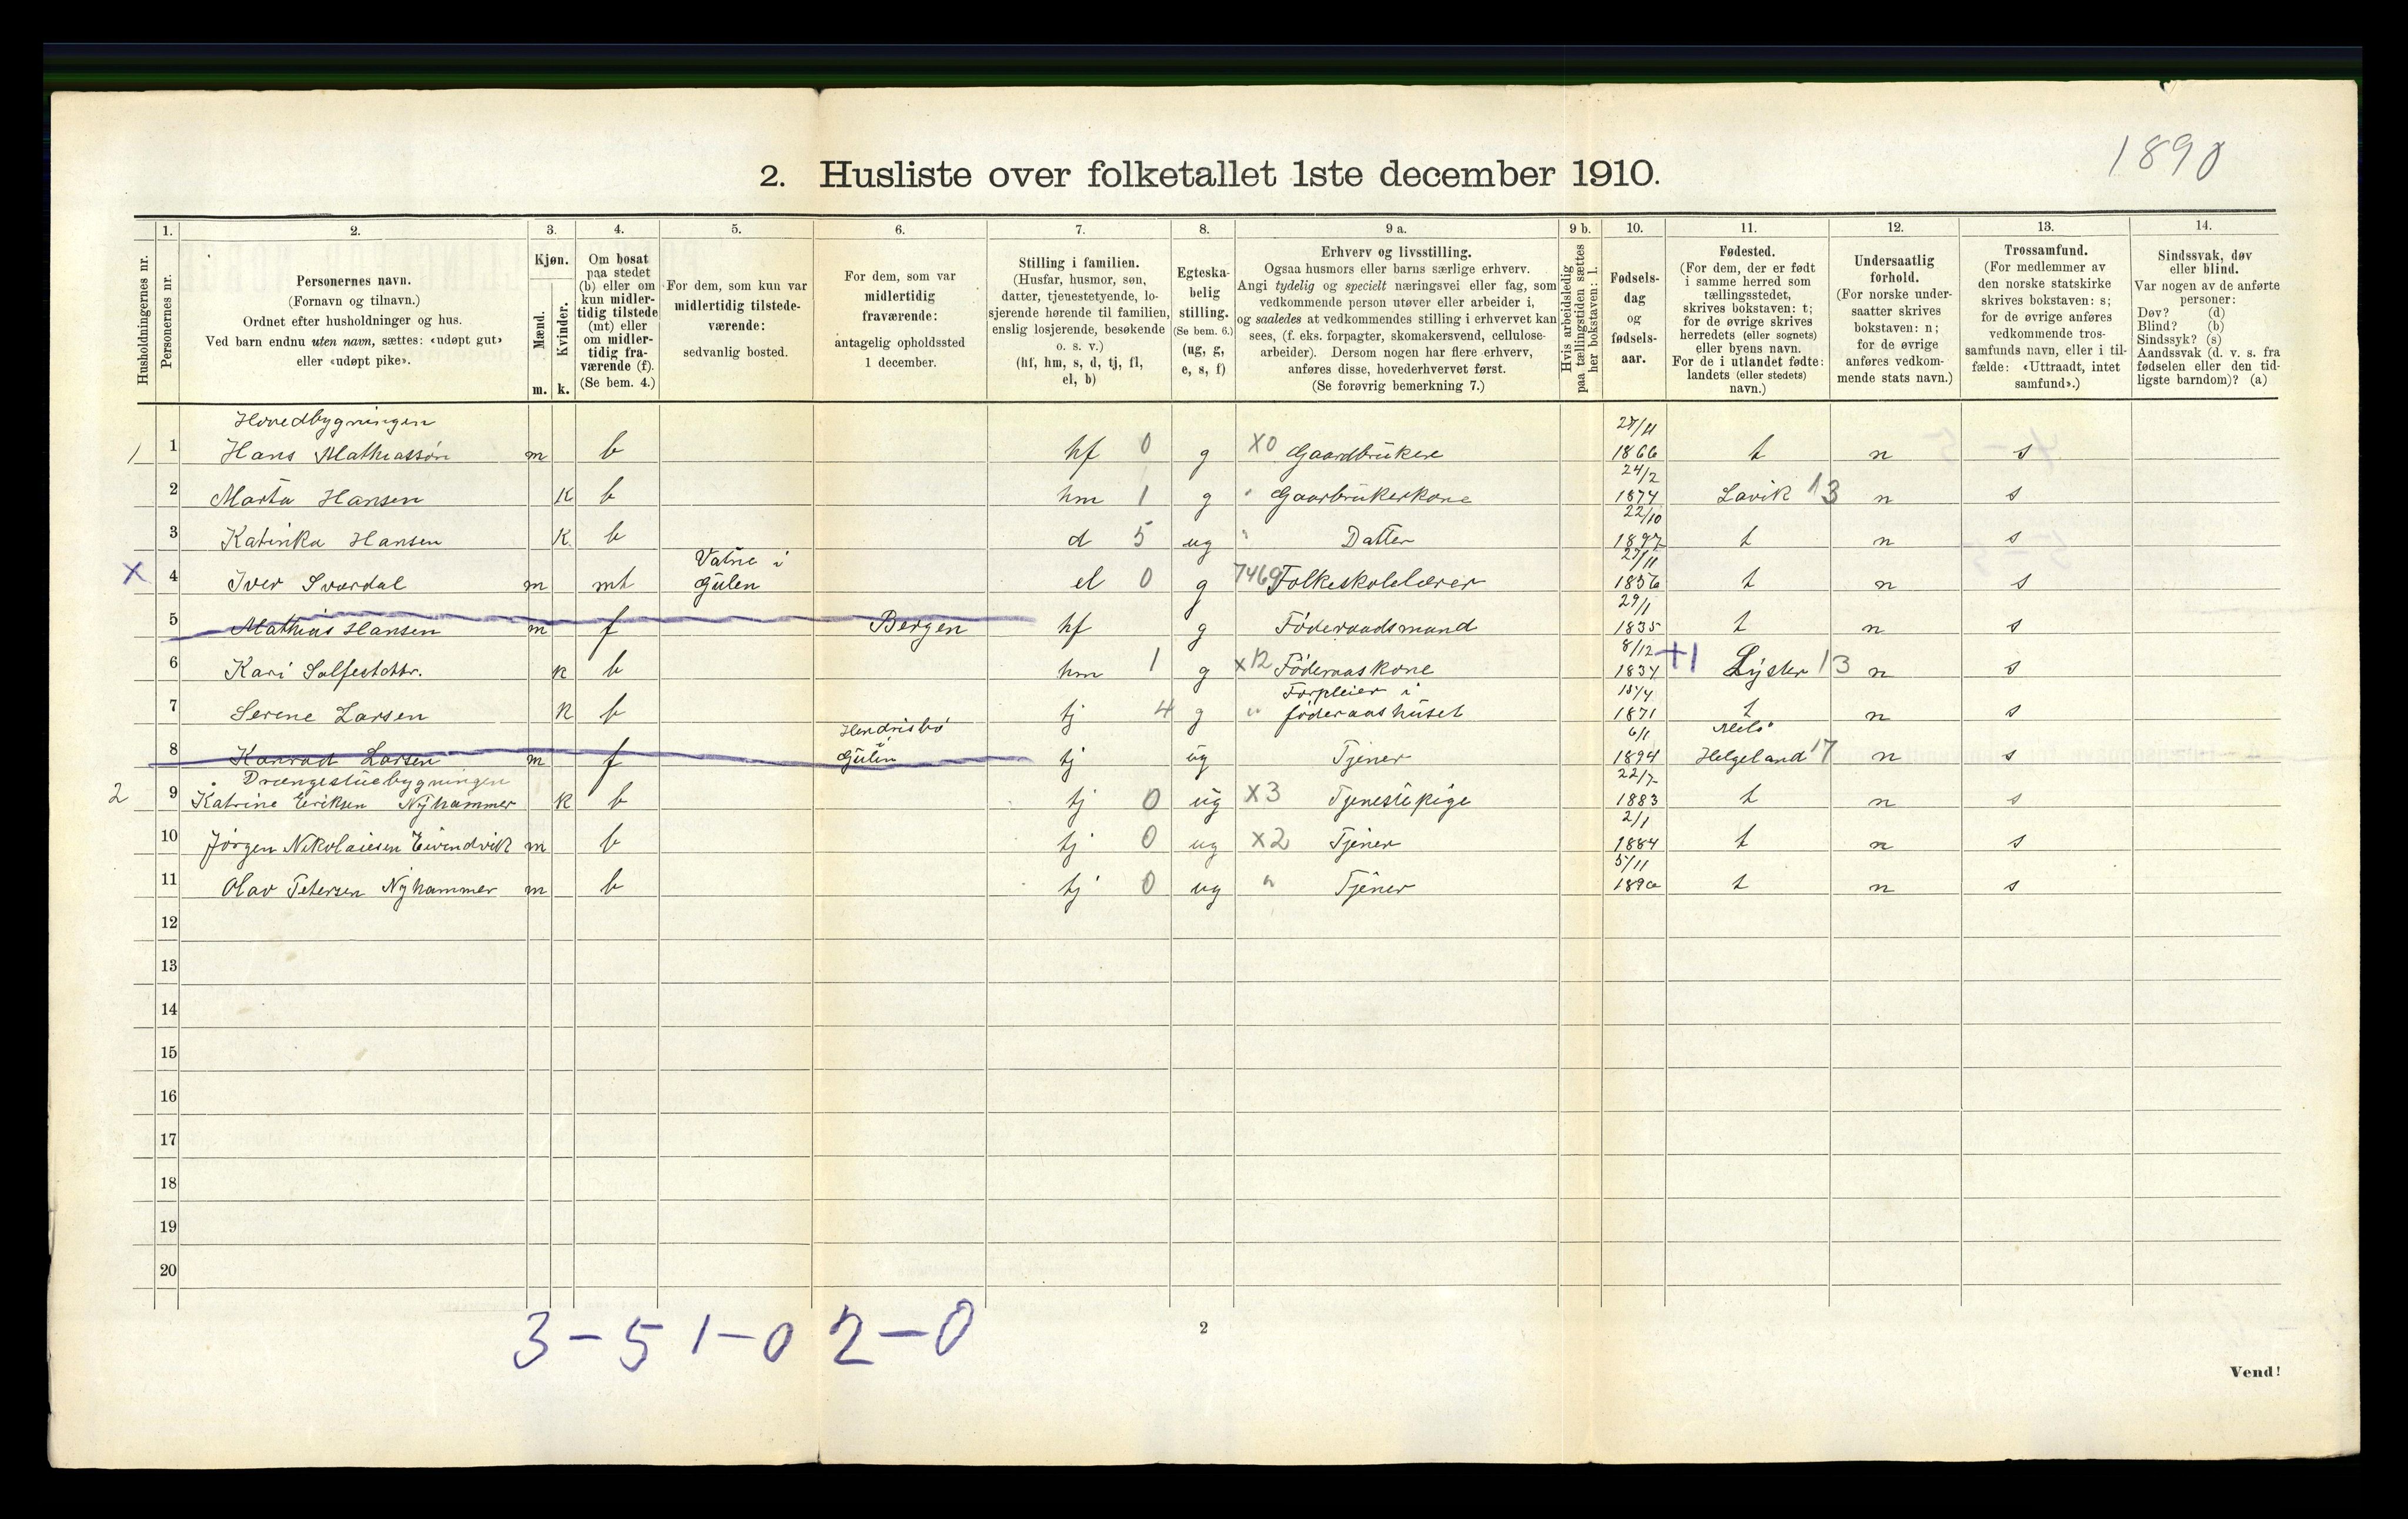 1890
2. Husliste over folketallet 1ste december 1910.
Husholdningernes nr.
1.
Personernes nr.
2.
Personernes navn.
(Fornavn og tilnavn.)
Ordnet efter husholdninger og hus.
Ved barn endnu uten navn, sættes: «udøpt gut»
eller «udøpt pike».
3.
Kjøn.
Mænd.
m.
Kvinder.
k.
4.
Om bosat
paa stedet
(b) eller om
kun midler-
tidig tilstede
(mt) eller
om midler-
tidig fra-
værende (f).
(Se bem. 4.)
5.
For dem, som kun var
midlertidig tilstede-
værende:
sedvanlig bosted.
6.
For dem, som var
midlertidig
fraværende:
antagelig opholdssted
1 december.
7.
Stilling i familien.
(Husfar, husmor, søn,
datter, tjenestetyende, lo-
sjerende hørende til familien,
enslig losjerende, besøkende
o. s. v.)
(hf, hm, s, d, tj, fl,
el, b)
8.
Egteska-
belig
stilling.
(Se bem. 6.)
(ug, g,
e, s, f)
9 a.
Erhverv og livsstilling.
Ogsaa husmors eller barns særlige erhverv.
Angi tydelig og specielt næringsvei eller fag, som
vedkommende person utøver eller arbeider i,
og saaledes at vedkommendes stilling i erhvervet kan
sees, (f. eks. forpagter, skomakersvend, cellulose-
arbeider). Dersom nogen har flere erhverv,
anføres disse, hovederhvervet først.
(Se forøvrig bemerkning 7.)
9 b.
Hvis arbeidsledig
paa tællingstiden sættes
her bokstaven: l.
10.
Fødsels-
dag
og
fødsels-
aar.
11.
Fødested.
(For dem, der er født
i samme herred som
tællingsstedet,
skrives bokstaven: t;
for de øvrige skrives
herredets (eller sognets)
eller byens navn.
For de i utlandet fødte:
landets (eller stedets)
navn.)
12.
Undersaatlig
forhold.
(For norske under-
saatter skrives
bokstaven: n;
for de øvrige
anføres vedkom-
mende stats navn.)
13.
Trossamfund.
(For medlemmer av
den norske statskirke
skrives bokstaven: s;
for de øvrige anføres
vedkommende tros-
samfunds navn, eller i til-
fælde: «Uttraadt, intet
samfund».)
14.
Sindssvak, døv
eller blind.
Var nogen av de anførte
personer:
Døv? (d)
Blind? (b)
Sindssyk? (s)
Aandssvak (d. v. s. fra
fødselen eller den tid-
ligste barndom)? (a)
Hovedbygningen
1 1 Hans Mathiassøn m b hf 0 g X0 Gaardbruker 1866 t n s
2 Marta Hansen K b hm 1 g " Gaarbrukerkone 24/2 1874 Lavik 13 n s
3 Katinka Hansen K b d 5 ug " Datter 22/10 1897 t n s
X 4 Iver Svardal m mt Vatne i Gulen el 0 g 7469 Folkeskolelærer 27/11 1856 t n s
5 Mathias Hansen m f Bergen hf g Föderaadsmand 29/1 1835 t n s
6 Kari Solfestdttr. k b hm 1 g X12 Föderaaskone 8/12 1834 +1 Lyster 13 n s
7 Serene Larsen k b tj 4 g " Forpleier i föderaashuset 1871 t n s
8 Konrad Larsen m f Hendrisbö i Gulen tj ug Tjener 6/1 1894 Melö Helgeland 17 n s
Drængestuebygningen
2 9 Katrine Eriksen Nyhammer k b tj 0 ug X3 Tjenestepige 22/7 1883 t n s
10 Jörgen Nikolaiesen Eivindvik m b tj 0 ug X2 Tjener 2/1 1884 t n s
11 Olav Petersen Nyhammer m b tj 0 ug " Tjener 5/11 1890 t n s
12
13
14
15
16
17
18
19
20
3-5 1-0 2-0
2
Vend!